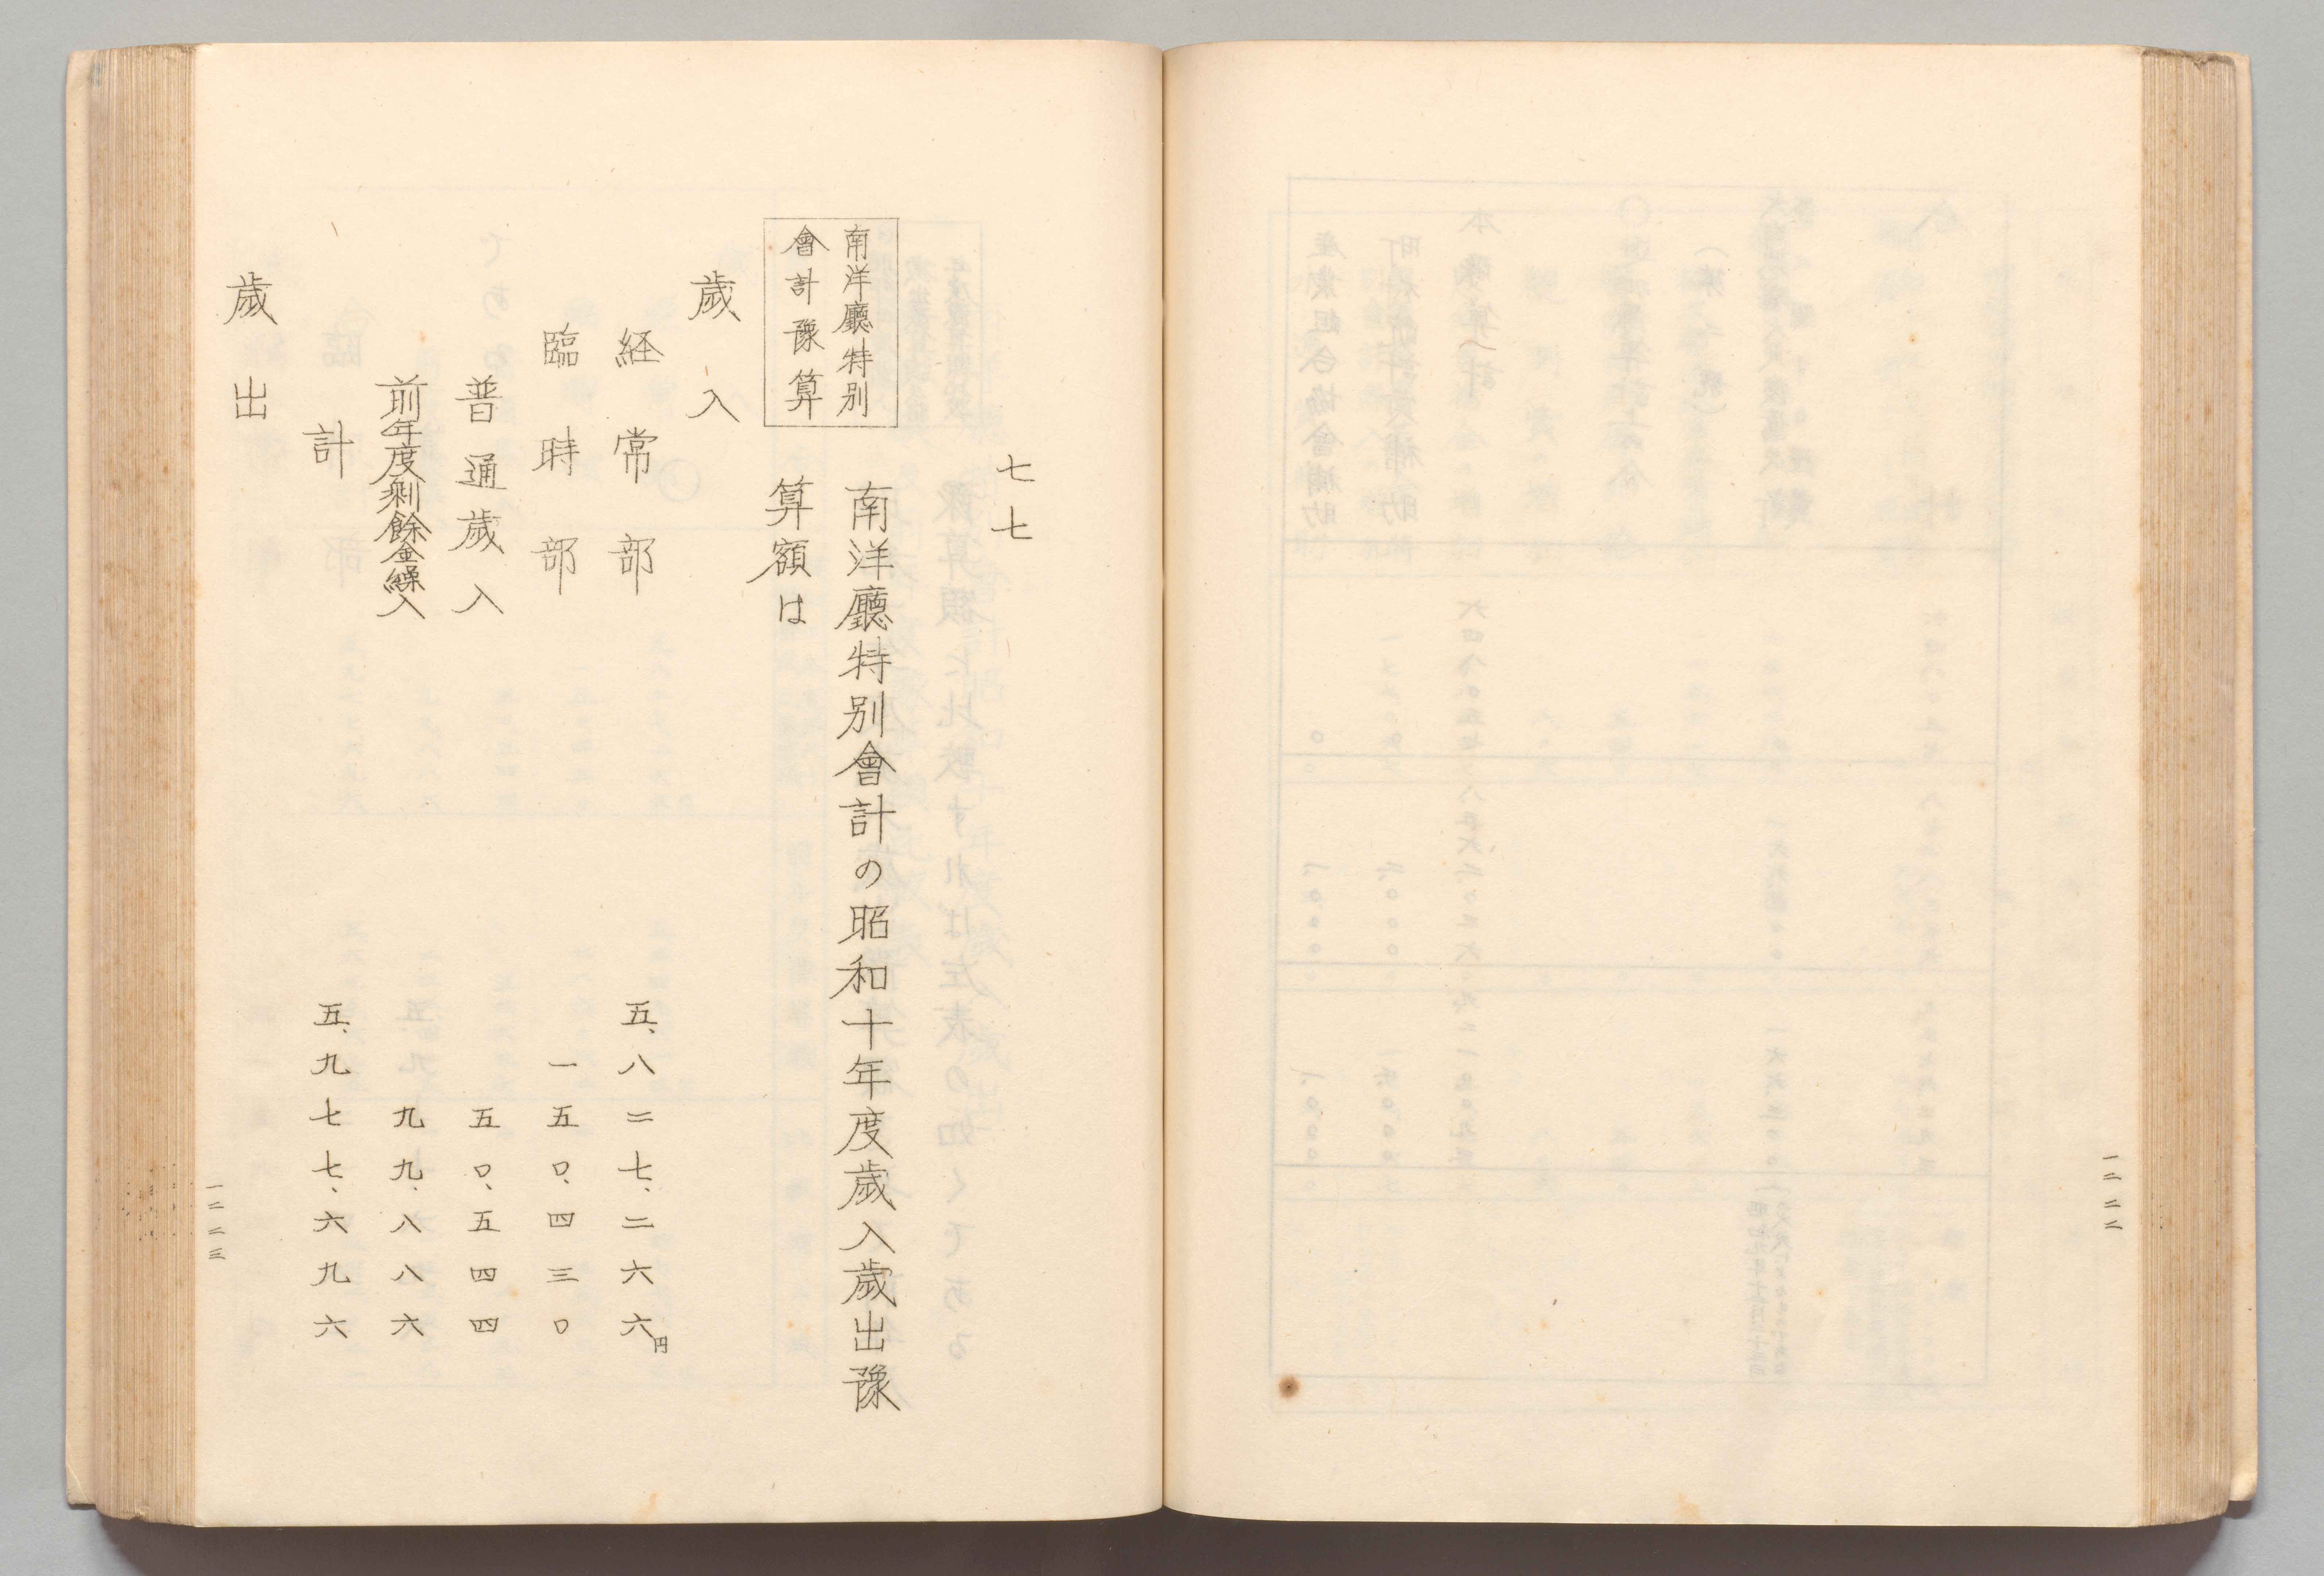 一二二二
七七
南洋廳特別
會計豫算
南洋廳特別會計の昭和十年度歲入歲出豫
算額は
歲入
経常部 五、八二七、二六六円
臨時部 一五〇、四三〇
普通歲入 五〇、五四四
前年度剰餘金繰入 九九、八八六
計 五、九七七、六九六
歲出
一二二三